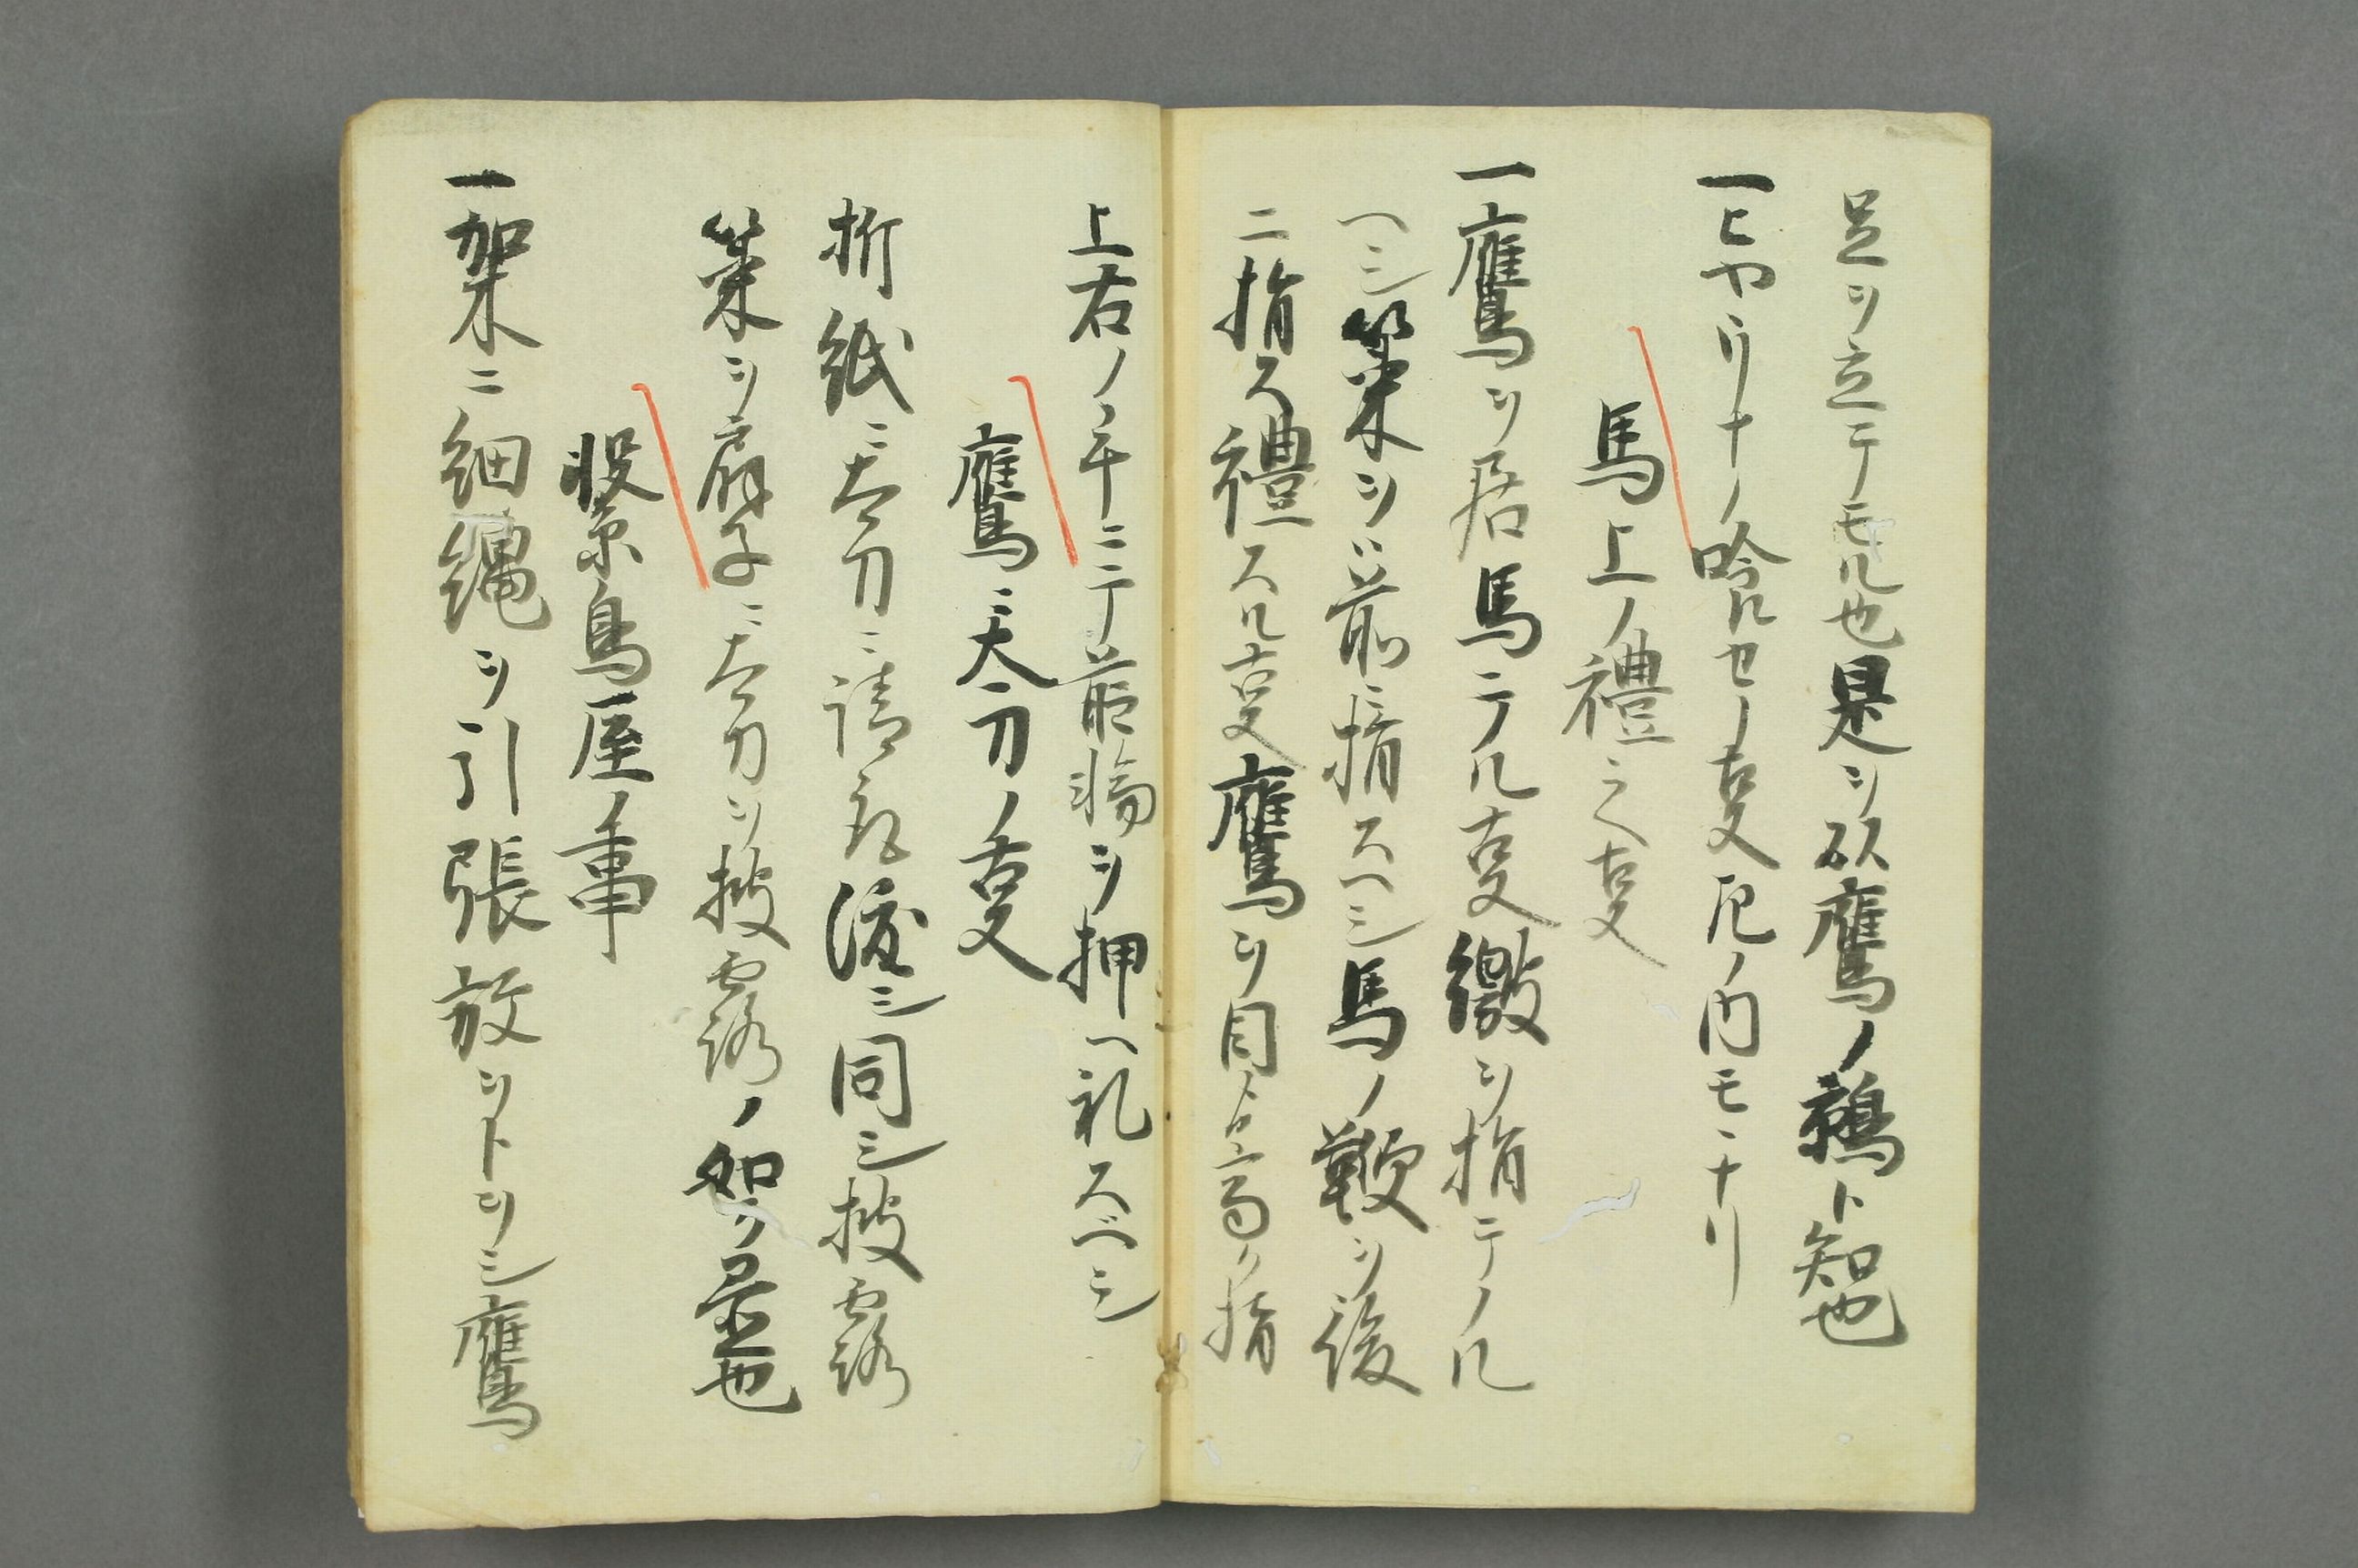 足ヲ立テモル也是ヲ以鷹ノ鶉ト知也
一ヒヤウリナノ吟ルセノ事尾ノ内モヽナリ
馬上ノ禮之事
一鷹ヲ居馬ニテル事繳ヲ指テノル
ヘシ策ヲハ前ニ指スヘシ馬ノ鞭ヲ後
ニ指ス禮スル事鷹ヲ目ヨリ高ク指
上右ノ手ニテ前輪ヲ押ヘ礼スベシ
鷹ニ太刀ノ事
折紙ニ太刀ニ請取渡シ同シ披露
策ヲ扇子ニ太刀ヲ披露ノ如ク是也
繋鳥屋ノ事
一架ニ細縄ヲ引張放ツトリシ鷹